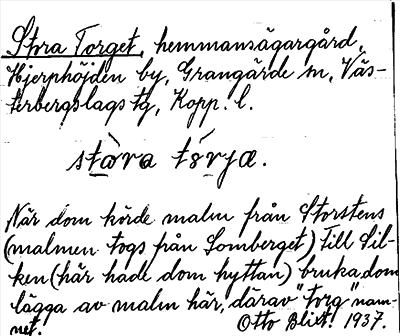 Stora Torget, hemmansägargård,
Hjerphöjden by, Grangärde sn, Väs-
terbergslags tg, Kopp. l.
stòra tórja.
När dom körde malm från Storstens
(malmen togs från Somberget) till Sil-
ken (här hade dom hyttan) bruka dom
lägga av malm här, därav "torg"nam-
net. Otto Blixt. 1937.